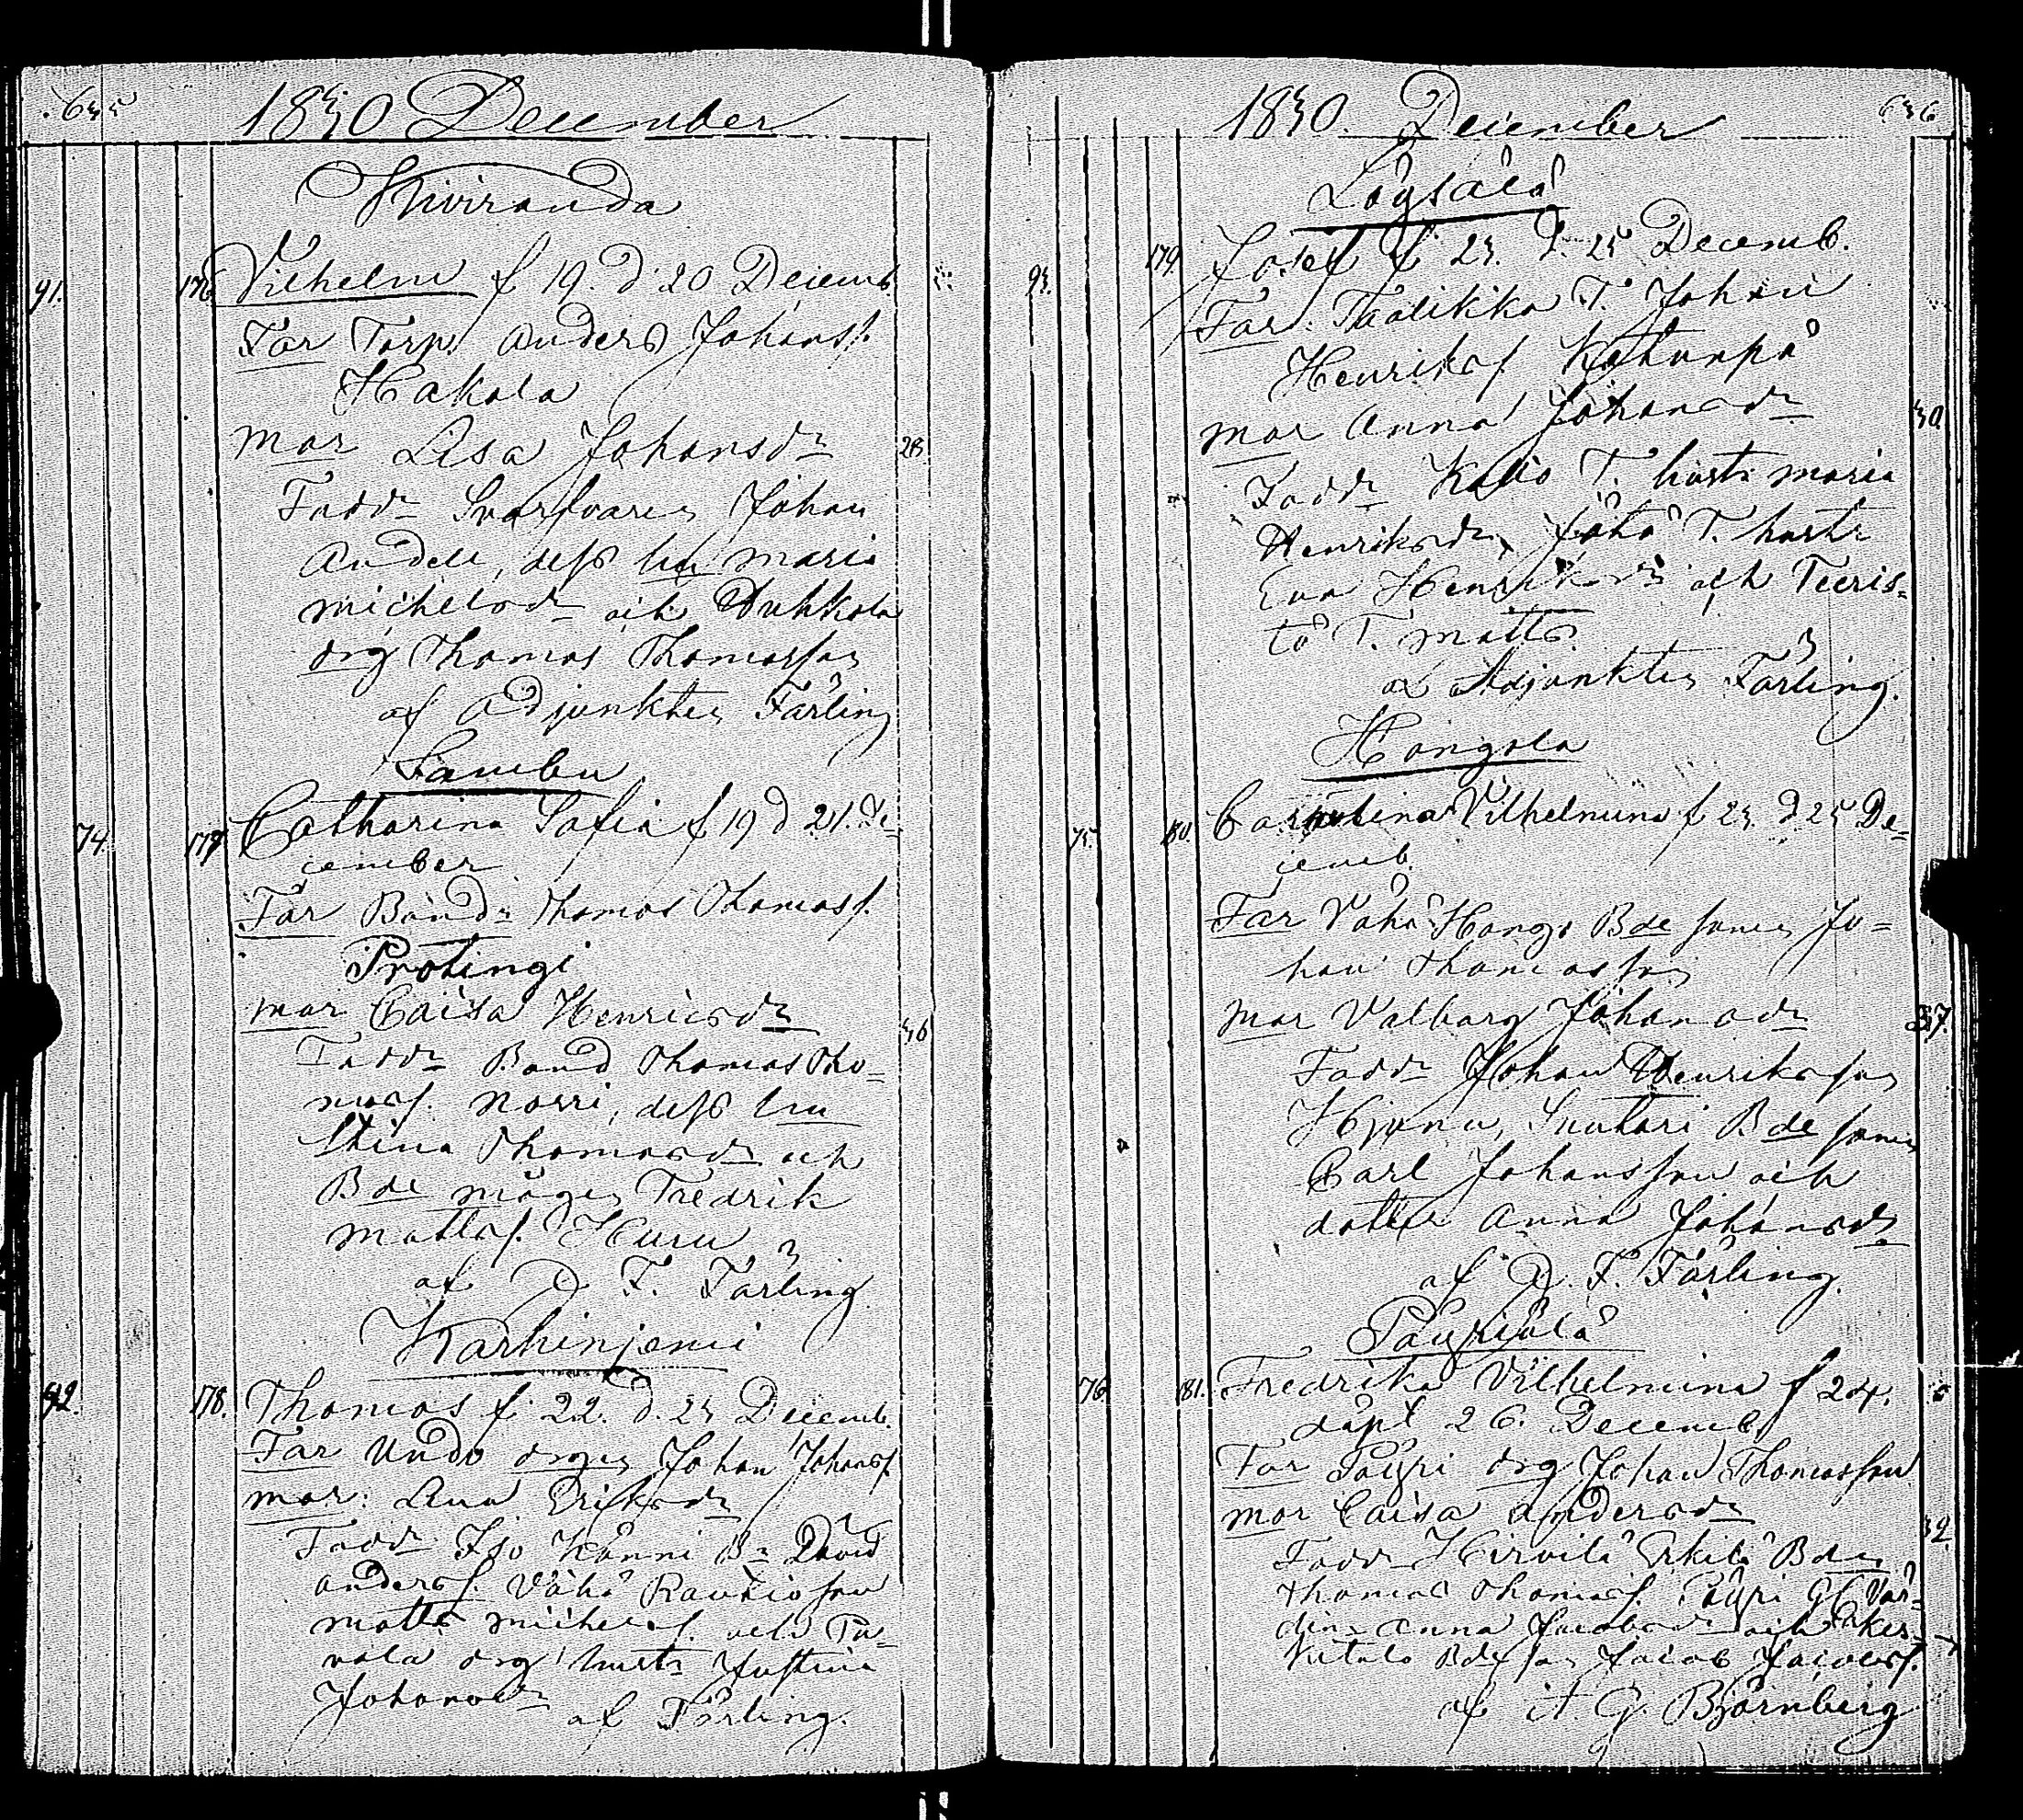 1830 December
Kiviranda
91. 176. Vilhelm f 19. d 20 Decemb.
Far Torp. Anders Johanss.
Hakola
mor Lisa Johansdr 28.
Fadd. Svarfvaren Johan
Andell, dess hu maria
michelsdr och Duhkola
drg Thomas Thomasson
af Adjunkten Färling
Sambu
74. 177. Catharina Sofia f 19 d 21. De=
cember
Far Bond. Thomas Thomass.
Protingi
mor Caisa Henricsdr 36
Fadd. Bond Thomas Tho=
mass. Norri, dess hu
Stina Thomasdr och
Bde mågen Fredrik
Mattss. Huru
af D. F. Färling
Karhinjemi
92. 178. Thomas f. 22. d. 23 Decemb.
Far Undo drgen Johan Johanss.
mor: Lena Eriksdr
Fadd. Iso Känni Bn David
anderss. Vähä Rautio son
matts michels. och Pa=
vola drg hustr Justina
Johansdr
af Färling.
636
1830. December
Lögsälä
93. 179. Josef f 23. d. 25 Decemb.
Far: Taalikka T. Johan
Henrikss. Ketunpä
mor Anna Johansdr 30.
Fadd. Kallio T. hustr maria
Henriksdr, T. hustr
Eva Henriksdr och Teeris=
tö T. matts.
af Adjunkten Färling.
Hongola
75. 180. Carolina Vilhelmina f 23. d 25 De=
cemb.
Far Vähä Hongo Bde sonen Jo=
han Thomasson
Mor Valborg Johansdr 37.
Fadd. Johan Henriksson
Suutari Bde sonen
Carl Johansson och
dotter Anna Johansdr
af D. F. Färling.
76. 181. Fredrika Vilhelmina f 24.
döpt 26. Decemb.
Far drg Johan Thomasson
mor Caisa Andersdr 32.
Fadd. Hirvilä Erkilä Bden
Thomas Thomass.
Anna Jacobsdr och
Bde son Jacob Jacobss.
af A. G. Björnberg